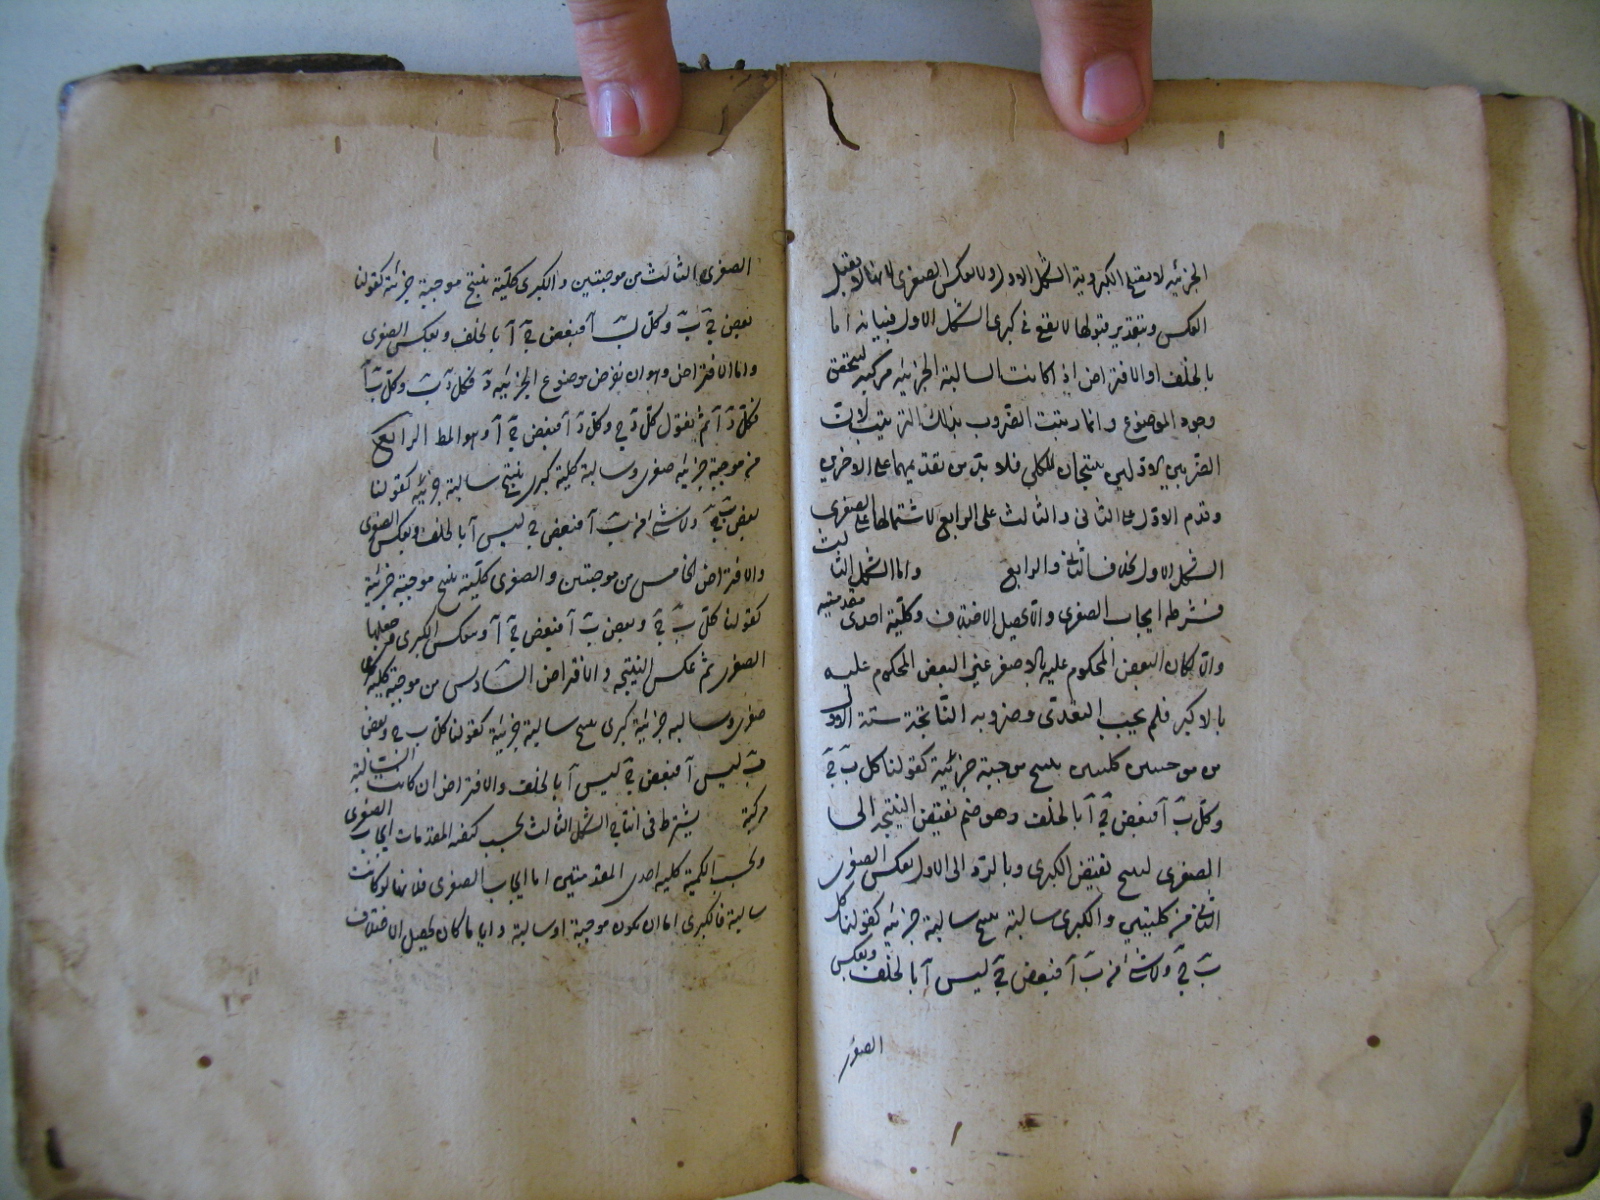 الجزئية لا تقع الكبروية الشكل الاول ولا بعكس الصغرى لانها لا تقبل
العكس وبتقدير قبولها لا يقع في كبرى الشكل الاول فبيانه اما
بالخلف او الافتراض اذا كانت السالبة الجزئية مركبة ليتحقق
وجود الموضوع وانما رتبت الضروب بذلك الترتيب لان
الضربين الاولين ينتجان الكلى فلا بد من تقديمهما على الاخرين
وقدم الاول على الثانى والثالث على الرابع لاشتمالها على صغرى
الشكل الاول بخلاف الثانى والرابع واما الشكل الثالث
فشرطه ايجاب الصغرى والا يحصل الاختلاف وكلية احدى مقدمتيه
والا لكان البعض المحكوم عليه بالاصغر غير البعض المحكوم عليه
بالاكبر فلم يجب التعدى وضروبه الناتجة ستة الاول
من موجبتين كليتين ينتج موجبة جزئية كقولنا كل ب ج
وكل ب آ فبعض ج آ بالخلف وهو ضم نقيض النتيجة الى
الصغرى لينتج نقيض الكبرى وبالرد الى الاول بعكس الصغرى
الثانى من كليتين والكبرى سالبة ينتج سالبة جزئية كقولنا كل
ب ج ولا شئ من ب آ فبعض ج ليس آ بالخلف وبعكس
الصغرى
الصغرى الثالث من موجبتين والكبرى كلية ينتج موجبة جزئية كقولنا
بعض ج ب وكل ب آ فبعض ج آ بالخلف وبعكس الصغرى
واما الافتراض وهو ان نفرض موضوع الجزئية د فكل د ب وكل ب آ
فكل د آ ثم نقول كل د ج وكل د آ فبعض ج آ وهو المط الرابع
من موجبة جزئية صغرى وسالبة كلية كبرى ينتج سالبة جزئية كقولنا
بعض ب ج ولا شئ من ب آ فبعض ج ليس آ بالخلف وبعكس الصغرى
والافتراض الخامس من موجبتين والصغرى كلية ينتج موجبة جزئية
كقولنا كل ب ج وبعض ب آ فبعض ج آ وبعكس الكبرى وجعلها
الصغرى ثم عكس النتيجة والافتراض السادس من موجبة كلية
صغرى وسالبة جزئية كبرى ينتج سالبة جزئية كقولنا كل ب ج وبعض
ب ليس آ فبعض ج ليس آ بالخلف والافتراض ان كانت السالبة
مركبة يشترط فى انتاج الشكل الثالث بحسب كيفية المقدمات ايجاب الصغرى
وبحسب الكمية كلية احدى المقدمتين اما ايجاب الصغرى فلانها لو كانت
سالبة فالكبرى اما ان تكون موجبة او سالبة وايا ما كان يحصل الاختلاف